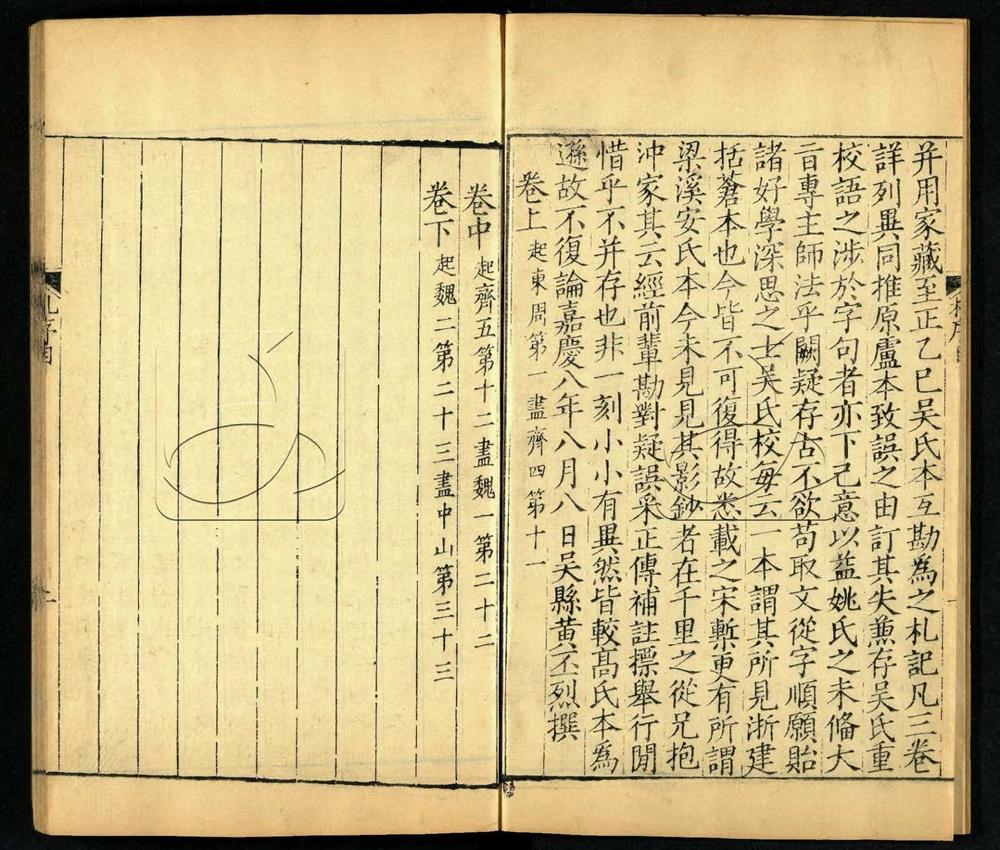 并用家藏至正乙巳吳氏本互勘為之札記凡三卷
詳列異同推原盧本致誤之由訂其失兼存吳氏重
校語之涉於字句者亦下己意以益姚氏之未備大
旨專主師法乎闕疑存古不欲苟取文從字順願貽
諸好學深思之士吳氏校每云一本謂其所見浙建
括蒼本也今皆不可復得故悉載之宋槧更有所謂
梁溪安氏本今未見見其影鈔者在千里之從兄抱
沖家其云經前輩勘對疑誤采正傳補註標舉行閒
惜乎不并存也非一刻小小有異然皆較高氏本為
遜故不復論嘉慶八年八月八日吳縣黃丕烈撰
卷上起東周第一盡齊四第十一
卷中起齊五第十二盡魏一第二十二
卷下起魏二第二十三盡中山第三十三